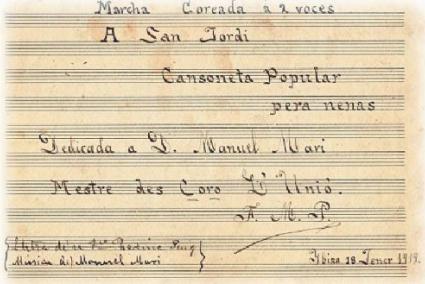 Marcha Coreada a 2 voces
A San Jordi
Cansoneta Popular
pera nenas
Dedicada a D. Manuel Mari
Mestre des Coro L'Unió.
F. M. P.
Lletra de
Música de Manuel Mari
Ibiza 18 Jener 1919.